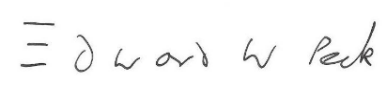 Edward W Peck